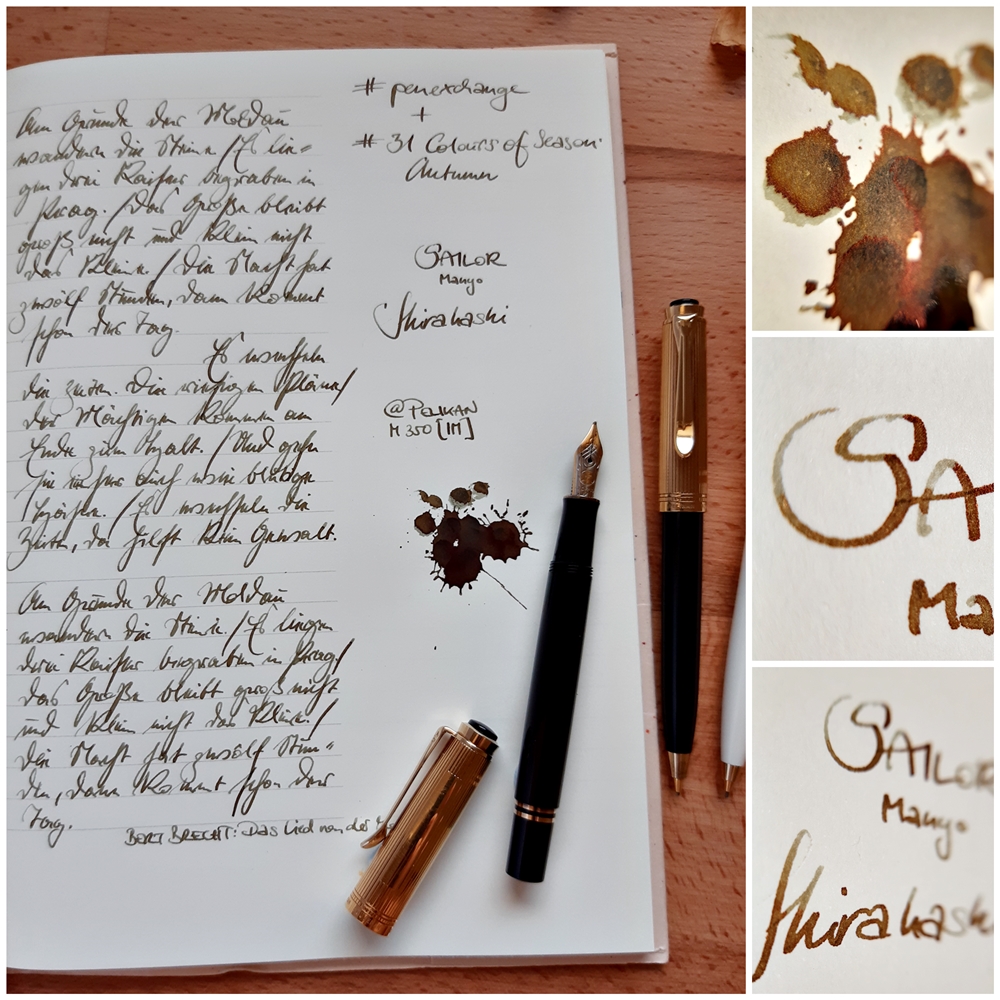 Am Grunde der Moldau
wandern die Steine / Es lie=
gen drei Kaiser begraben in
Prag. / Das Große bleibt
groß nicht und klein nicht
das Kleine. / Die Nacht hat
zwölf Stunden, dann kommt
schon der Tag.
Es wechseln
die Zeiten. Die riesigen Pläne/
der Mächtigen kommen am
Ende zum Halt. / Und gehn
sie einher auch wie blutige
Hähne. / Es wechseln die
Zeiten, da hilft kein Gewalt.
Am Grunde der Moldau
wandern die Steine / Es liegen
drei Kaiser begraben in Prag/
das Große bleibt groß nicht
und klein nicht das Kleine./
Die Nacht hat zwölf Stun=
den, dann kommt schon der
Tag.
BERT BRECHT: Das Lied von der M
# penexchange
+
# 31 Colours of Season:
Autumn
SAILOR
Mango
Shirakashi
@PELIKAN
M 350 [IM]
SA
Ma
SAILOR
Mango
Shirakashi